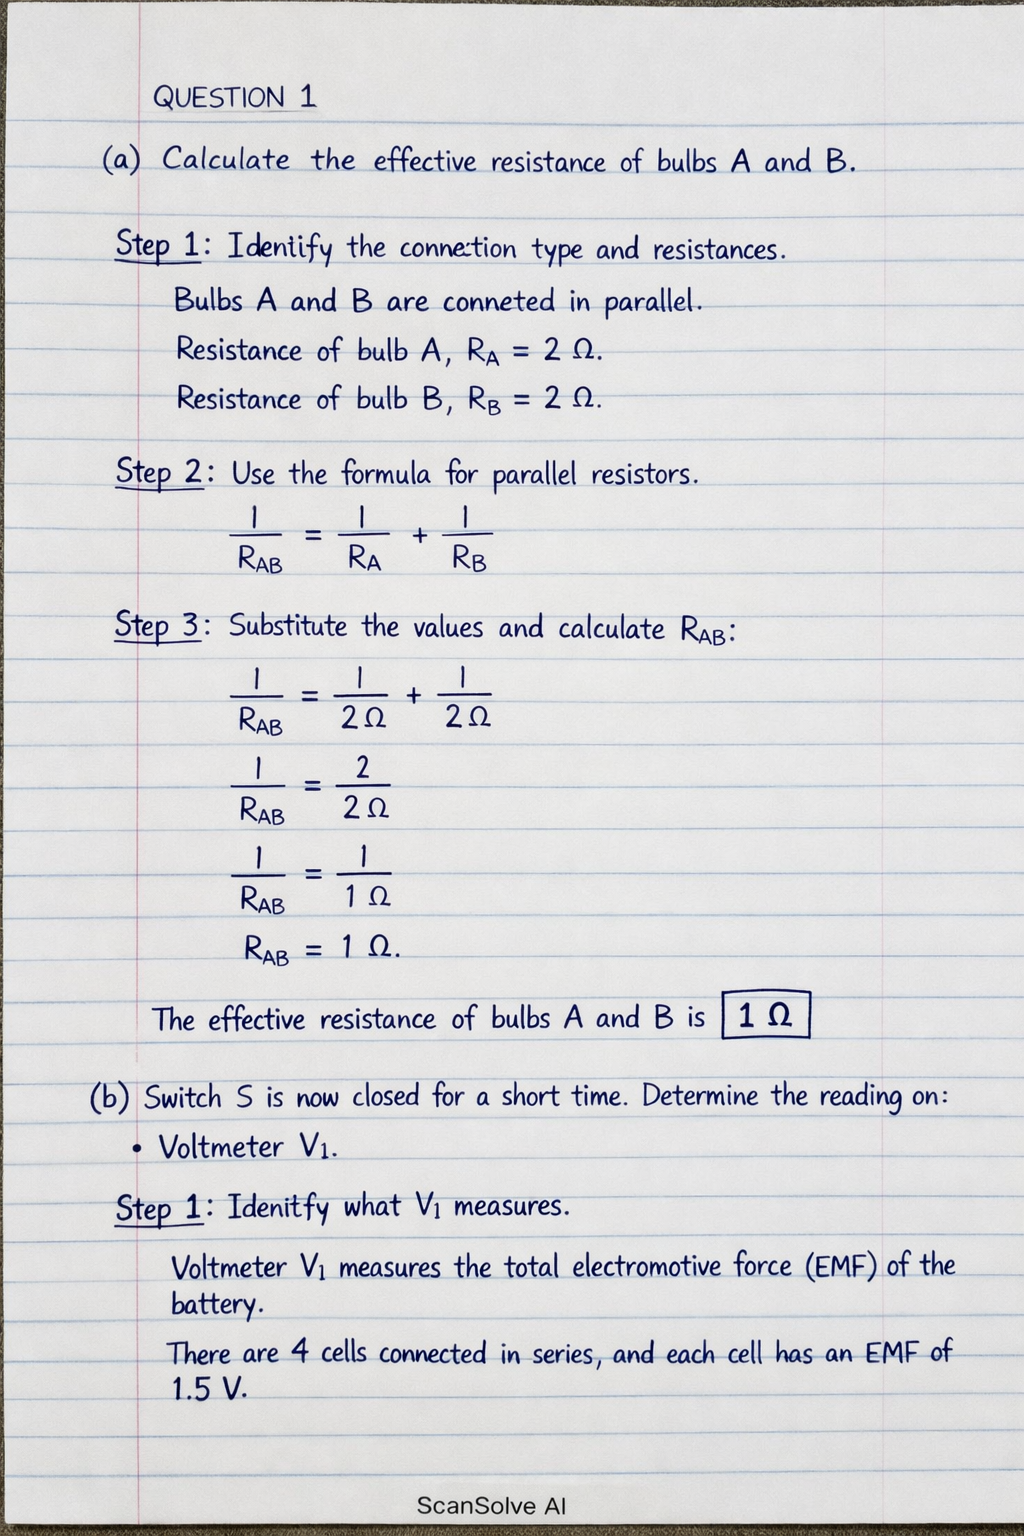 QUESTION 1
(a) Calculate the effective resistance of bulbs A and B.
Step 1: Identify the connection type and resistances.
Bulbs A and B are conneted in parallel.
Resistance of bulb A, R_A = 2 Ω.
Resistance of bulb B, R_B = 2 Ω.
Step 2: Use the formula for parallel resistors.
1/R_AB = 1/R_A + 1/R_B
Step 3: Substitute the values and calculate R_AB:
1/R_AB = 1/2 Ω + 1/2 Ω
1/R_AB = 2/2 Ω
1/R_AB = 1/1 Ω
R_AB = 1 Ω.
The effective resistance of bulbs A and B is 1 Ω
(b) Switch S is now closed for a short time. Determine the reading on:
• Voltmeter V₁.
Step 1: Idenitfy what V₁ measures.
Voltmeter V₁ measures the total electromotive force (EMF) of the
battery.
There are 4 cells connected in series, and each cell has an EMF of
1.5 V.
ScanSolve AI